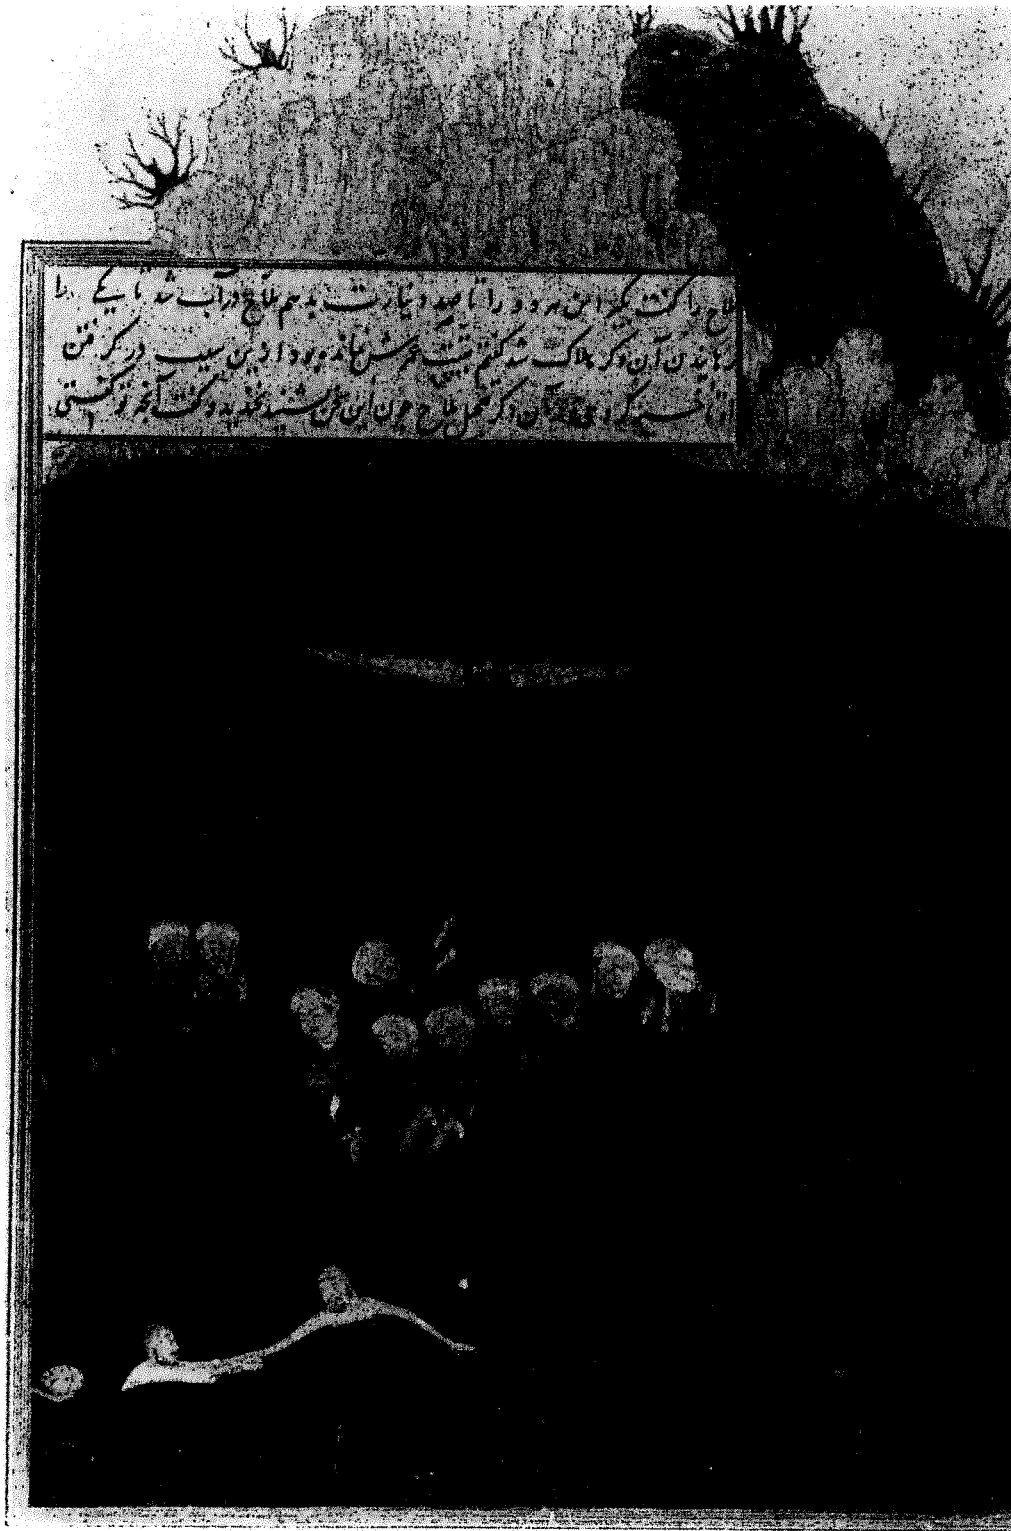 ملاح را گفت بگیر این هر دو را تا صد دینارت بدهم ملاح در آب شد تا یکی را
رهانید آن دگر هلاک شد گفتم بقیت عمرش نمانده بود ازین سبب در گرفتن
او تاخیر کردی و در آن دگر تعجیل ملاح چون این سخن بشنید بخندید و گفت آنچه تو گفتی